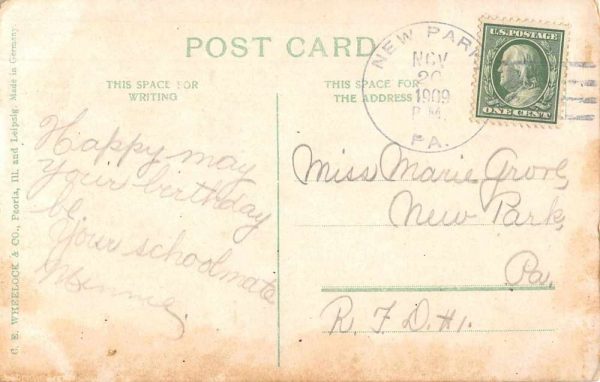 POST CARD
THIS SPACE FOR
WRITING
THIS SPACE FOR
THE ADDRESS
NEW PARK
NOV
20
1909
P.M.
PA.
U.S. POSTAGE
ONE CENT
Happy may
your birthday
be
Your schoolmate
Minnie.
Miss Marie Grove,
New Park,
Pa.
R. F. D. #1.
C. E. WHEELOCK & CO., Peoria, Ill. and Leipsig. Made in Germany.